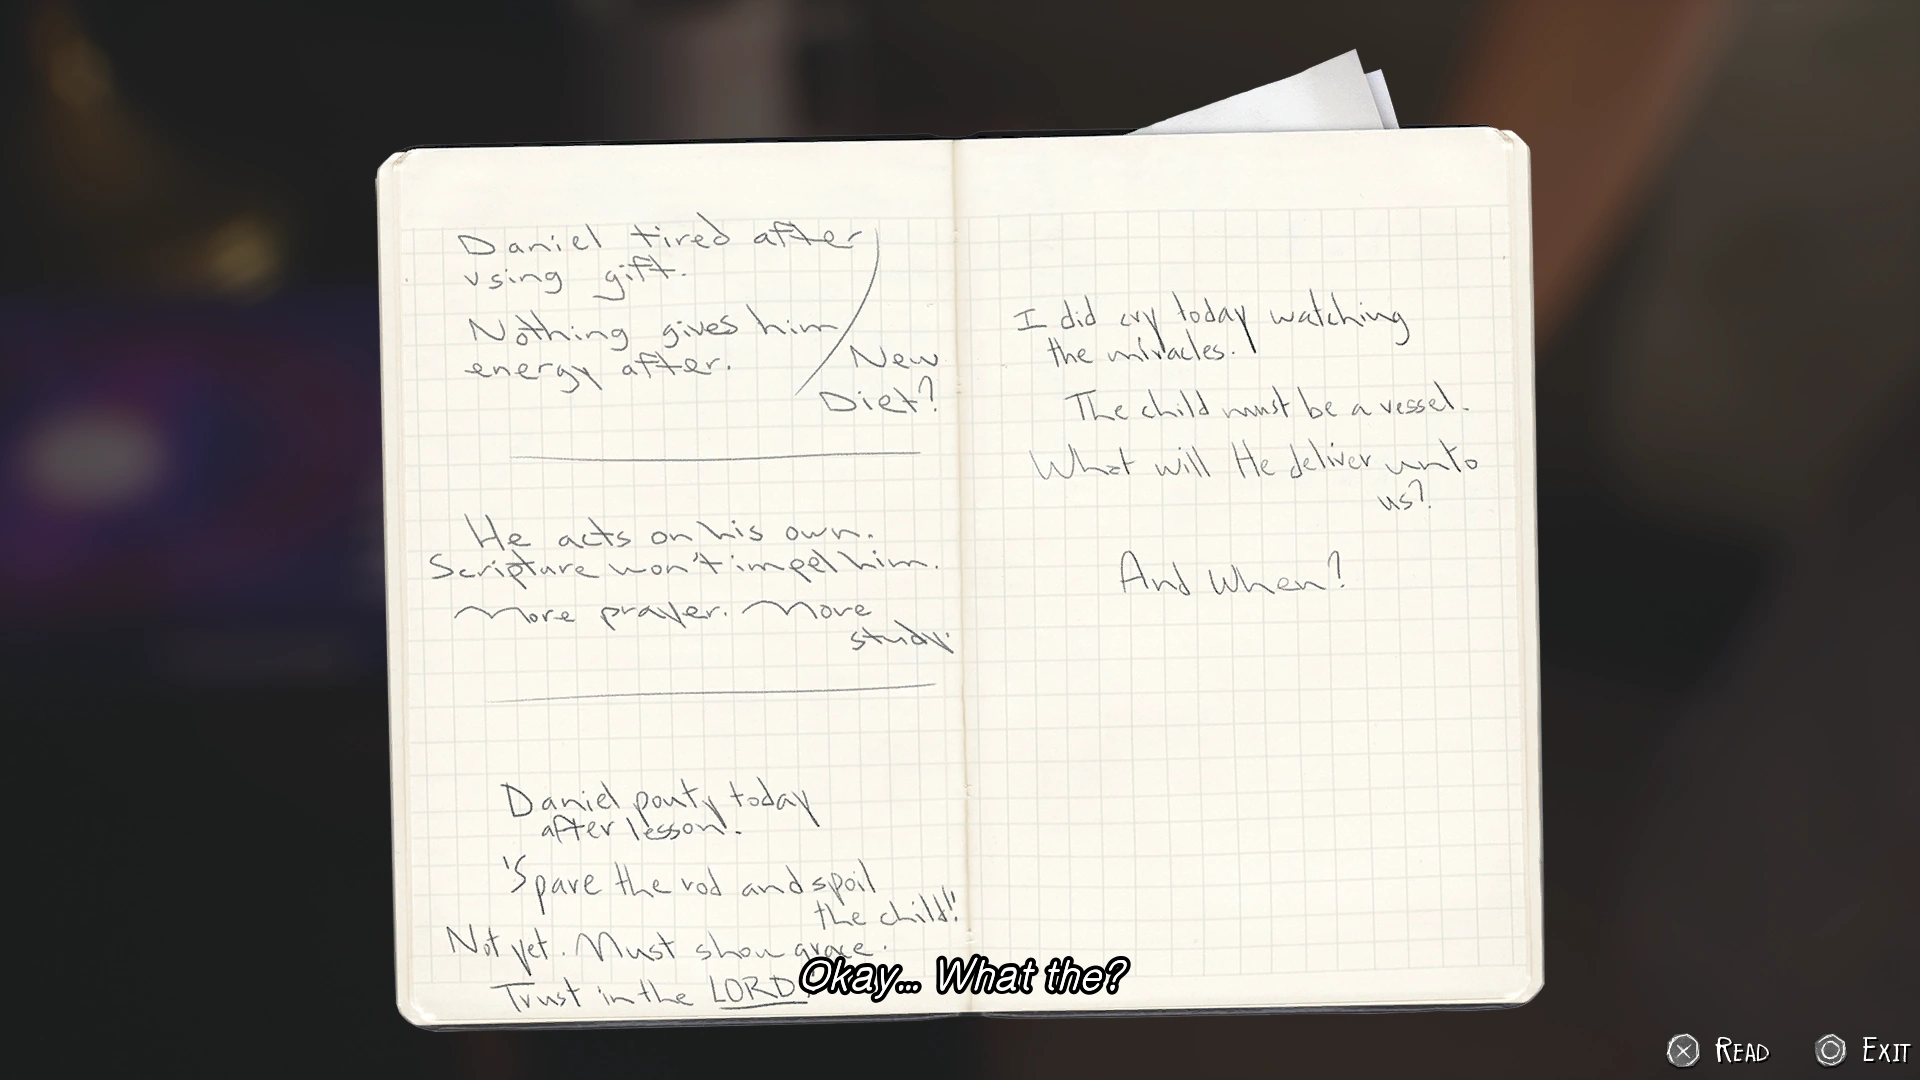 Daniel tired after
using gift.
Nothing gives him
energy after.
New
Diet?
He acts on his own.
Scripture won't impel him.
More prayer. More
study.
Daniel pouty today
after lesson.
'Spare the rod and spoil
the child!'
Not yet. Must show grace.
Trust in the LORD.
I did cry today watching
the miracles.
The child must be a vessel.
What will He deliver unto
us?
And When?
Okay... What the?
READ
EXIT